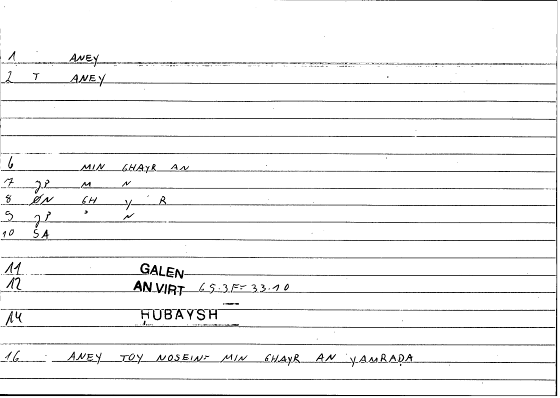 1 ANEY
2 T ANEY
6 MIN GHAYR AN
7 JP M N
8 ØN GH Y R
9 JP " N
10 SA
11 GALEN
12 AN VIRT 65.3F= 33.10
14 HUBAYSH
16 ANEY TOY NOSEIN= MIN GHAYR AN YAMRADA